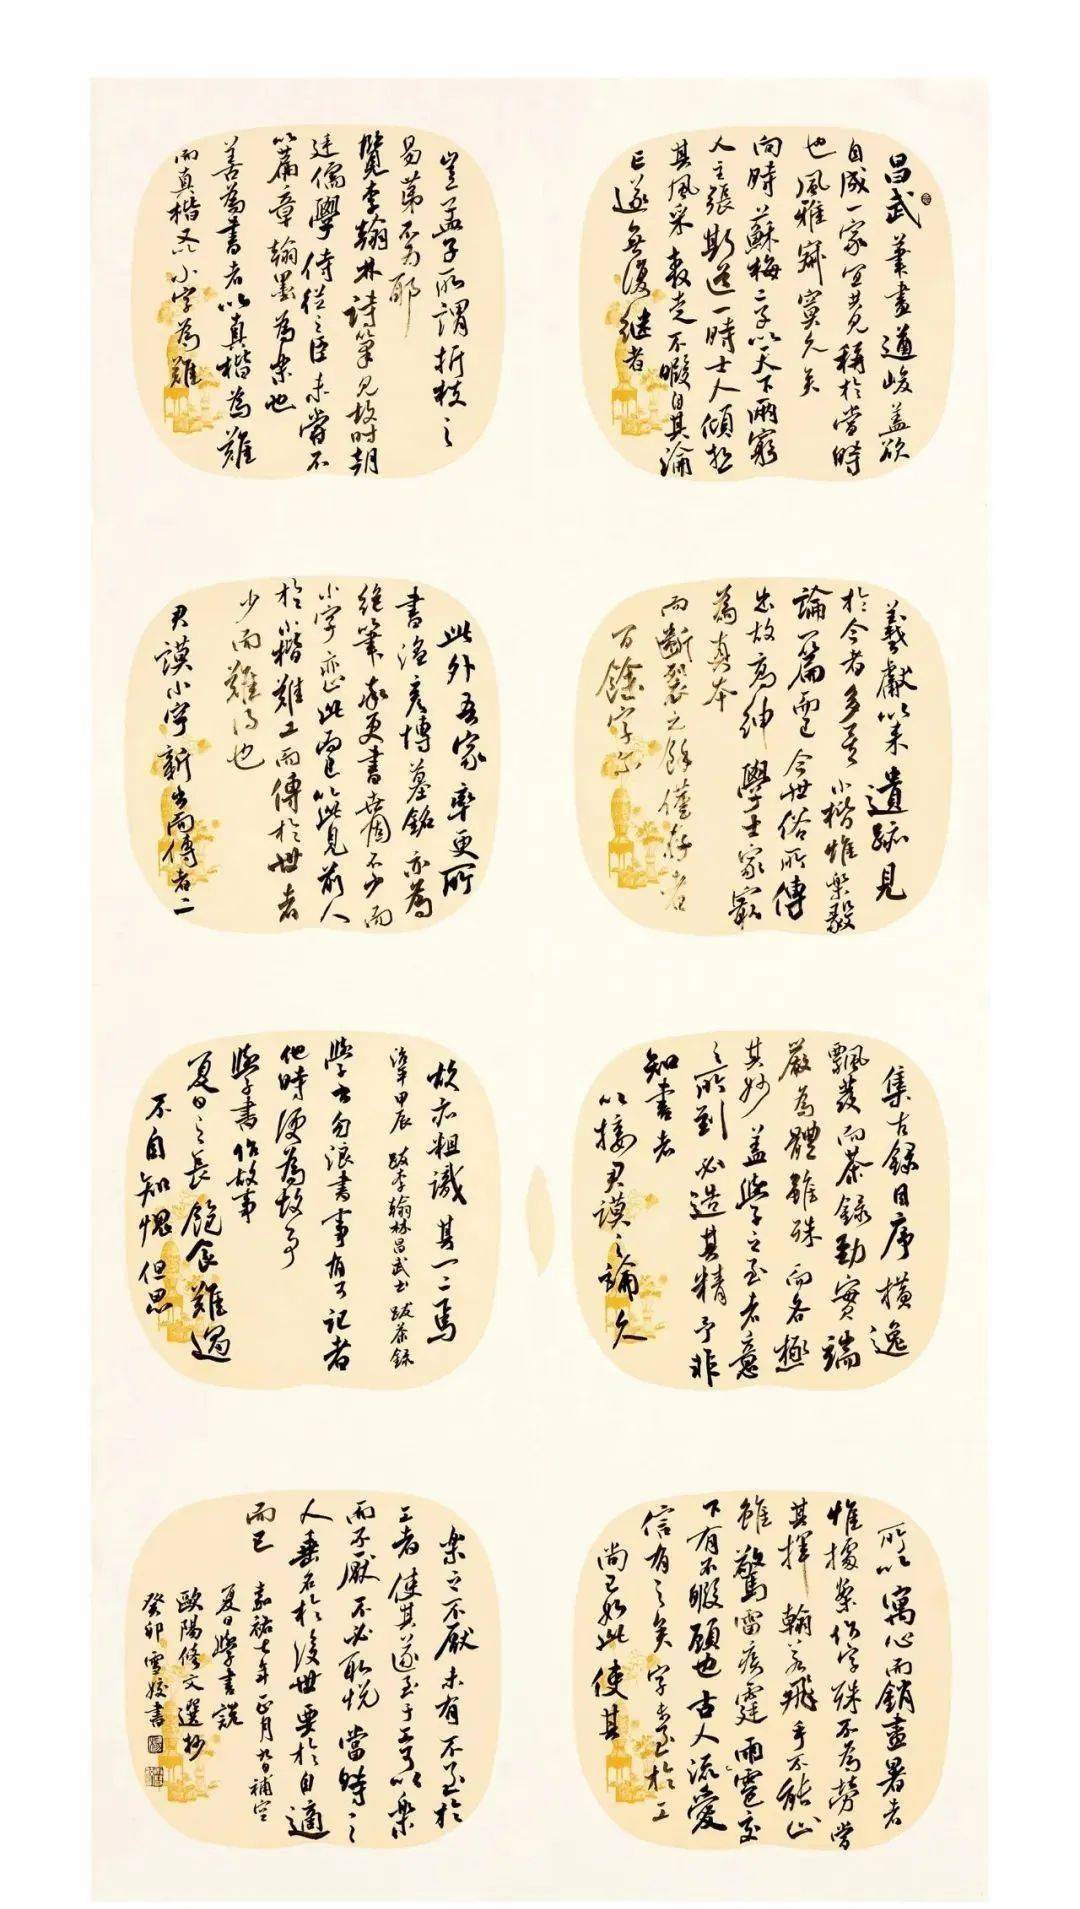 昌武筆畫遒峻蓋欲
自成一家宜其見稱於當時
也風雅寂寞久矣
向時蘇梅二子以天下兩窮
人主張斯道一時士人傾想
其風采奔走不暇自其淪
亡遂無復継者
豈孟子所謂折枝之
易第不為耶
覽李翰林詩筆見故時朝
廷儒學侍從之臣未嘗不
以篇章翰墨為樂也
善為書者以真楷為難
而真楷又以小字為難
羲獻以來遺跡見
於今者多矣小楷惟樂毅
論一篇而已今世俗所傳
出故高紳學士家最
為真本
而斷裂之餘僅存者
百餘字尔
此外吾家率更所
書溫彦博墓銘亦為
絶筆率更書世固不少而
小字亦止此而已以此見前人
於小楷難工而傳於世者
少而難得也
君謨小字新出而傳者二
集古錄目序横逸
飄發而茶錄勁實端
嚴為體雖殊而各極
其妙蓋學之至者意
之所到必造其精予非
知書者
以接君謨之論久
故亦粗識其一二焉
治平甲辰 跋李翰林昌武書 跋茶録
學書勿浪書事有可記者
他時便為故事
學書作故事
夏日之長飽食難過
不自知愧但思
所以寓心而銷晝暑者
惟據案作字殊不為勞當
其揮翰若飛手不能止
雖驚雷疾霆雨雹交
下有不暇顧也古人流愛
信有之矣字未至於工
尚已如此使其
樂之不厭未有不至於
工者使其遂至于工可以樂
而不厭不必取悦當時之
人垂名於後世要於自適
而已 嘉祐七年正月九日補空
夏日學書説
歐陽修文選抄
癸卯雪姣書